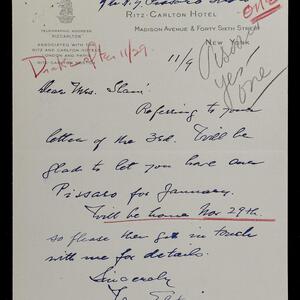 one
RITZ-CARLTON HOTEL
MADISON AVENUE & FORTY SIXTH STREET
NEW YORK
TELEGRAPHIC ADDRESS
RITZCARLTON
ASSOCIATED WITH THE
RITZ AND CARLTON HOTELS
LONDON AND PARIS
after 11/29.
11/9
Pissaro
yes
one
Dear Mrs.
Referring to your
letter of the 3rd. Will be
glad to let you have one
Pissaro for January.
Will be home Nov 29th.
so please then get in touch
with me for details.
Sincerely